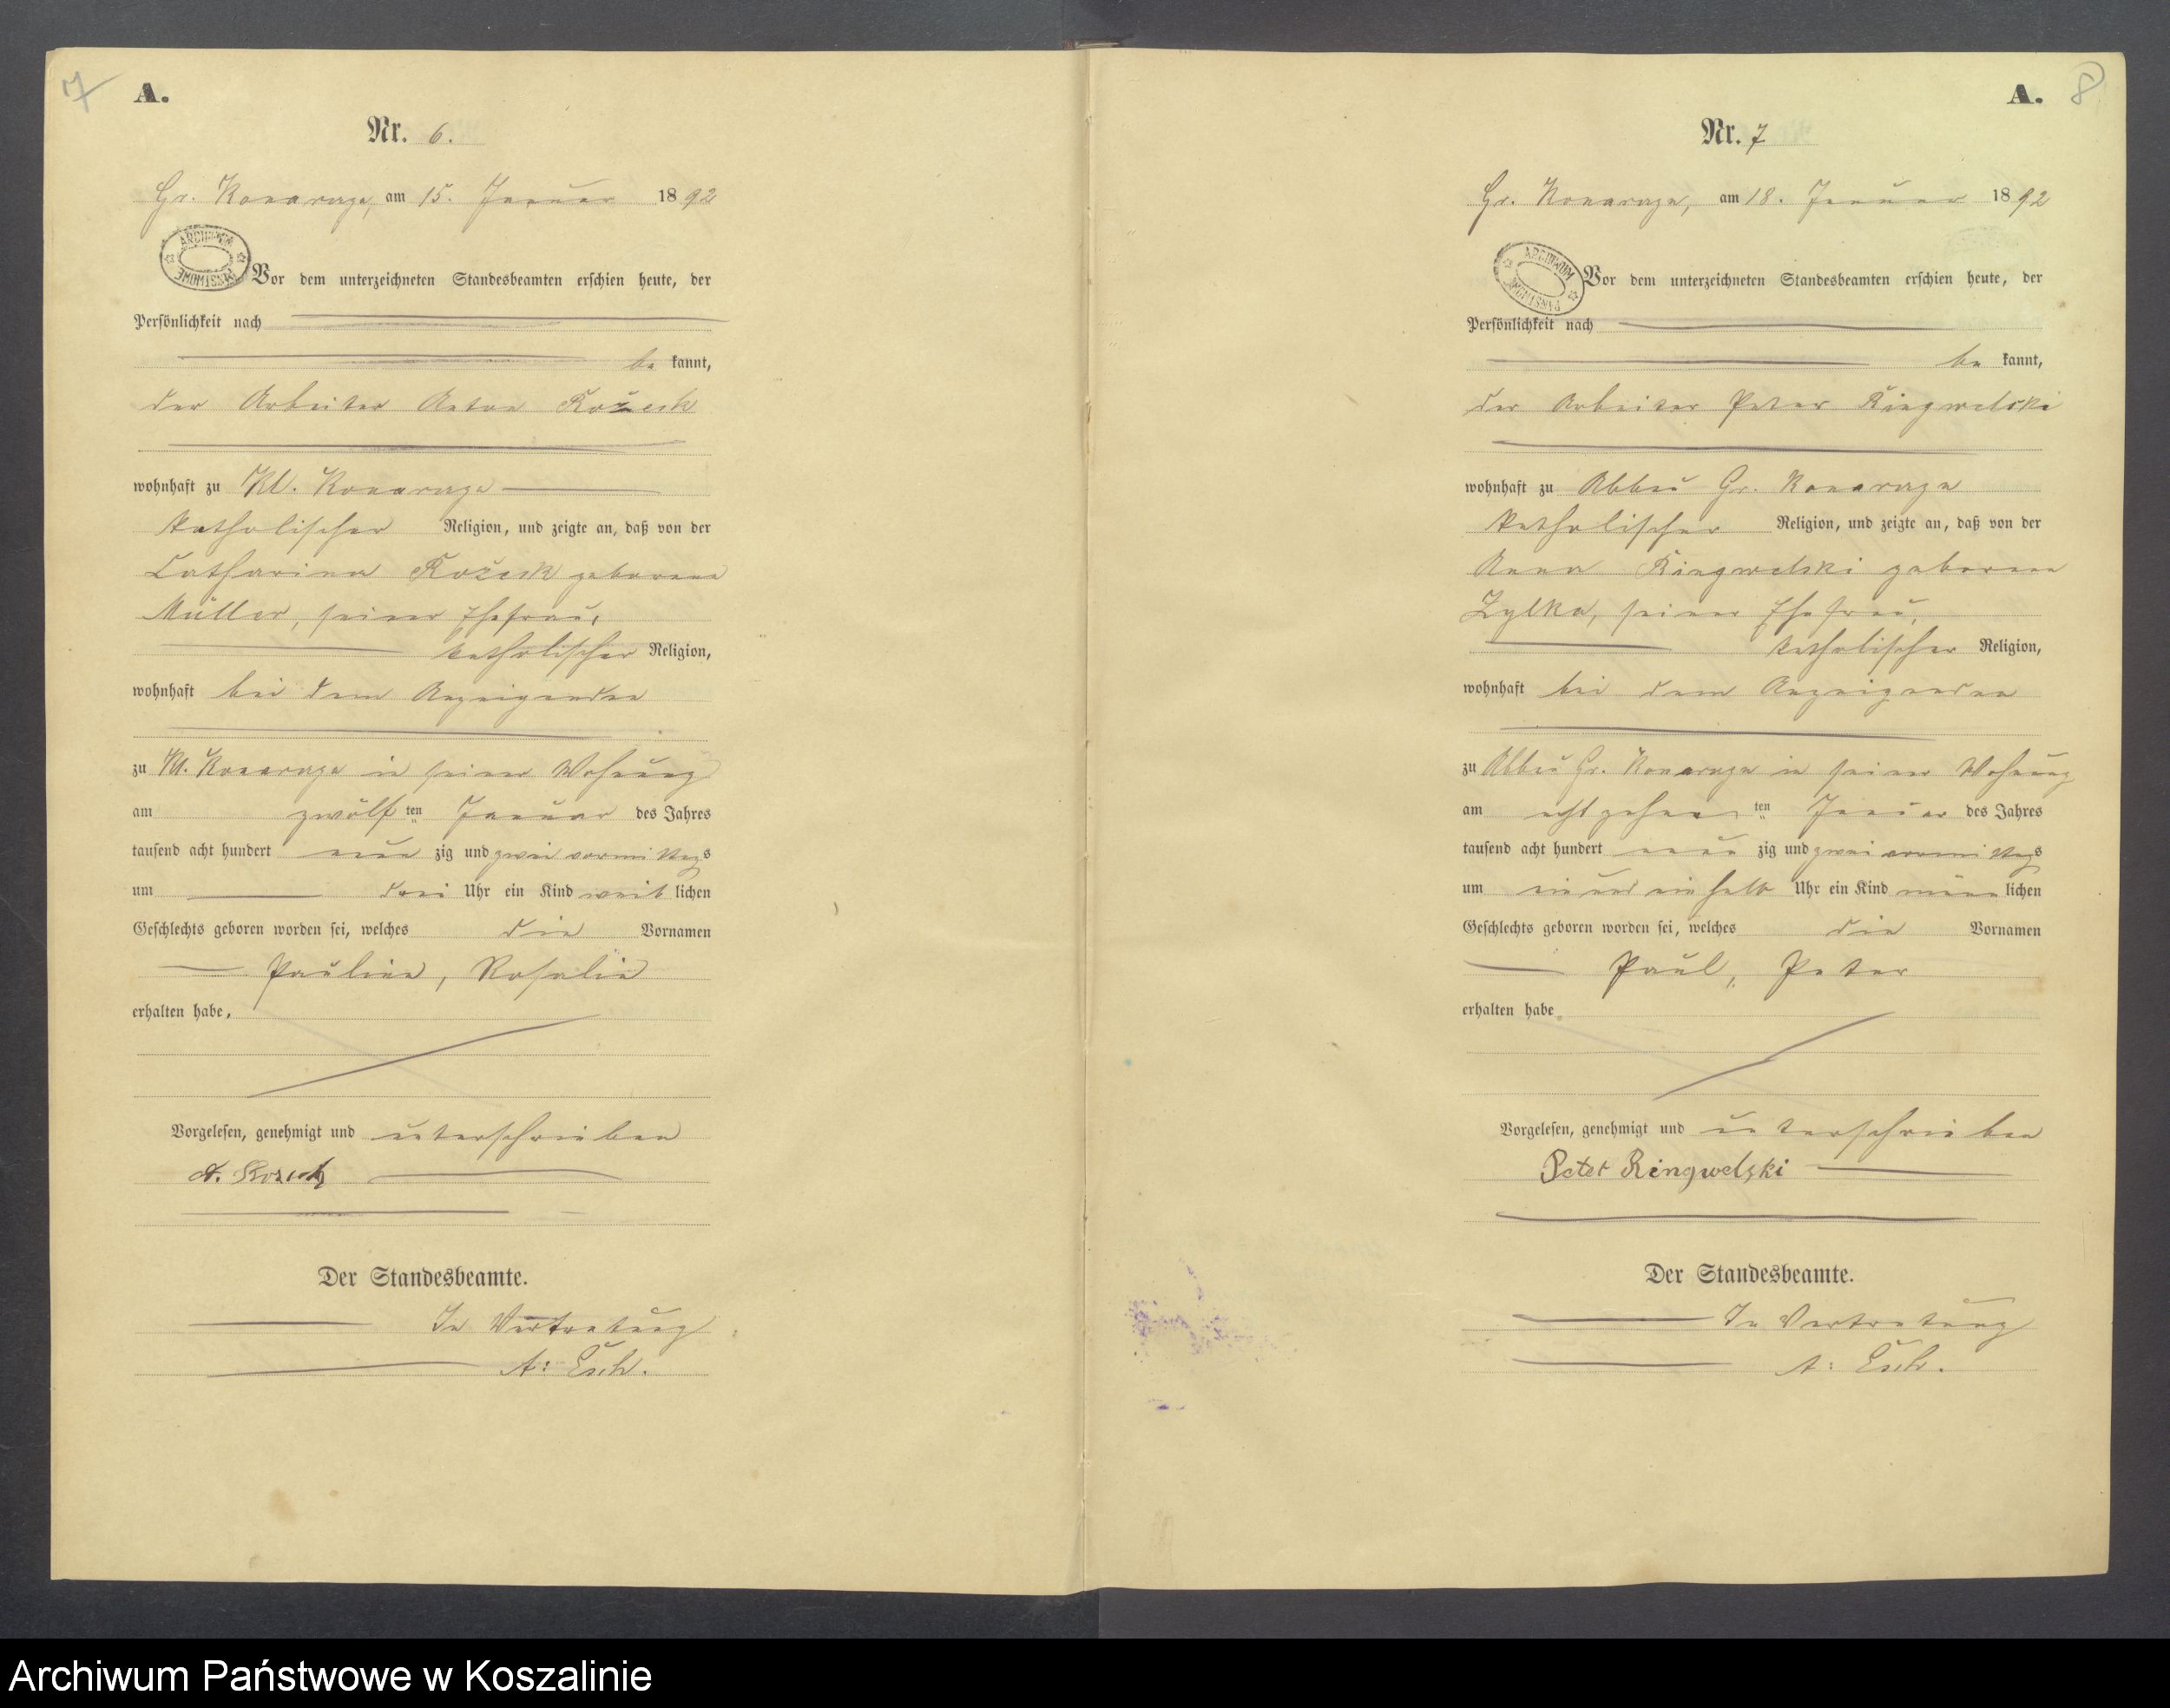 7
A.
Nr. 6.
Gr. Konarczyn, am 15. Januar 1892
ARCHIWUM PAŃSTWOWE
Vor dem unterzeichneten Standesbeamten erschien heute, der
Persönlichkeit nach
be kannt,
der Arbeiter Anton Kožesk
wohnhaft zu Kl. Konarczyn
katholischer Religion, und zeigte an, daß von der
Catharina Kožesk geborene
Müller, seiner Ehefrau,
katholischer Religion,
wohnhaft bei dem Anzeigenden
zu Kl. Konarczyn in seiner Wohnung
am zwölf ten Januar des Jahres
tausend acht hundert neun zig und zwei vormittags
um drei Uhr ein Kind weib lichen
Geschlechts geboren worden sei, welches die Vornamen
Pauline, Rosalie
erhalten habe.
Vorgelesen, genehmigt und unterschrieben
A.
Der Standesbeamte.
In Vertretung
A: Esch.
A. 8
Nr. 7
Gr. Konarczyn, am 18. Januar 1892
ARCHIWUM PAŃSTWOWE
Vor dem unterzeichneten Standesbeamten erschien heute, der
Persönlichkeit nach
be kannt,
der Arbeiter Peter Ringwelski
wohnhaft zu Abbau Gr. Konarczyn
katholischer Religion, und zeigte an, daß von der
Anna Ringwelski geborene
Zylka, seiner Ehefrau,
katholischer Religion,
wohnhaft bei dem Anzeigenden
zu Abbau Gr. Konarczyn in seiner Wohnung
am achtzehn ten Januar des Jahres
tausend acht hundert neun zig und zwei vormittags
um ein und ein halb Uhr ein Kind männ lichen
Geschlechts geboren worden sei, welches die Vornamen
Paul, Peter
erhalten habe.
Vorgelesen, genehmigt und unterschrieben
Peter Ringwelski
Der Standesbeamte.
In Vertretung
A: Esch.
Archiwum Państwowe w Koszalinie